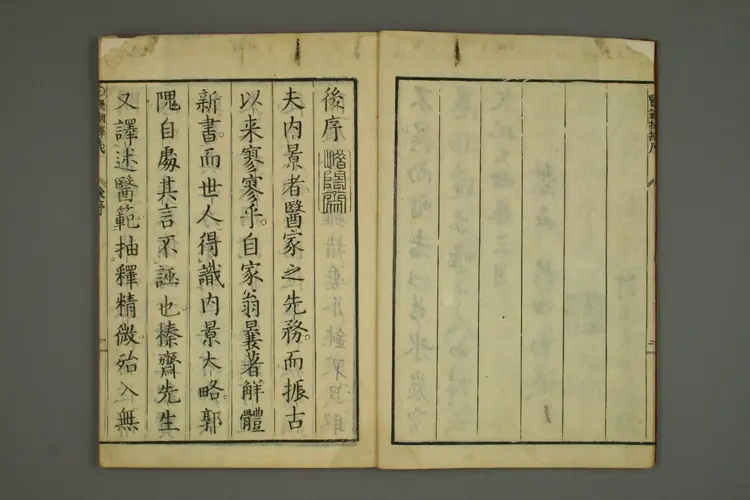 後序
夫内景者醫家之先務。而振古
以来寥寥乎。自家翁曩著解體
新書。而世人得識内景大略。郭
隗自處其言不誣也。榛齋先生
又譯述醫範抽釋精微。殆入無